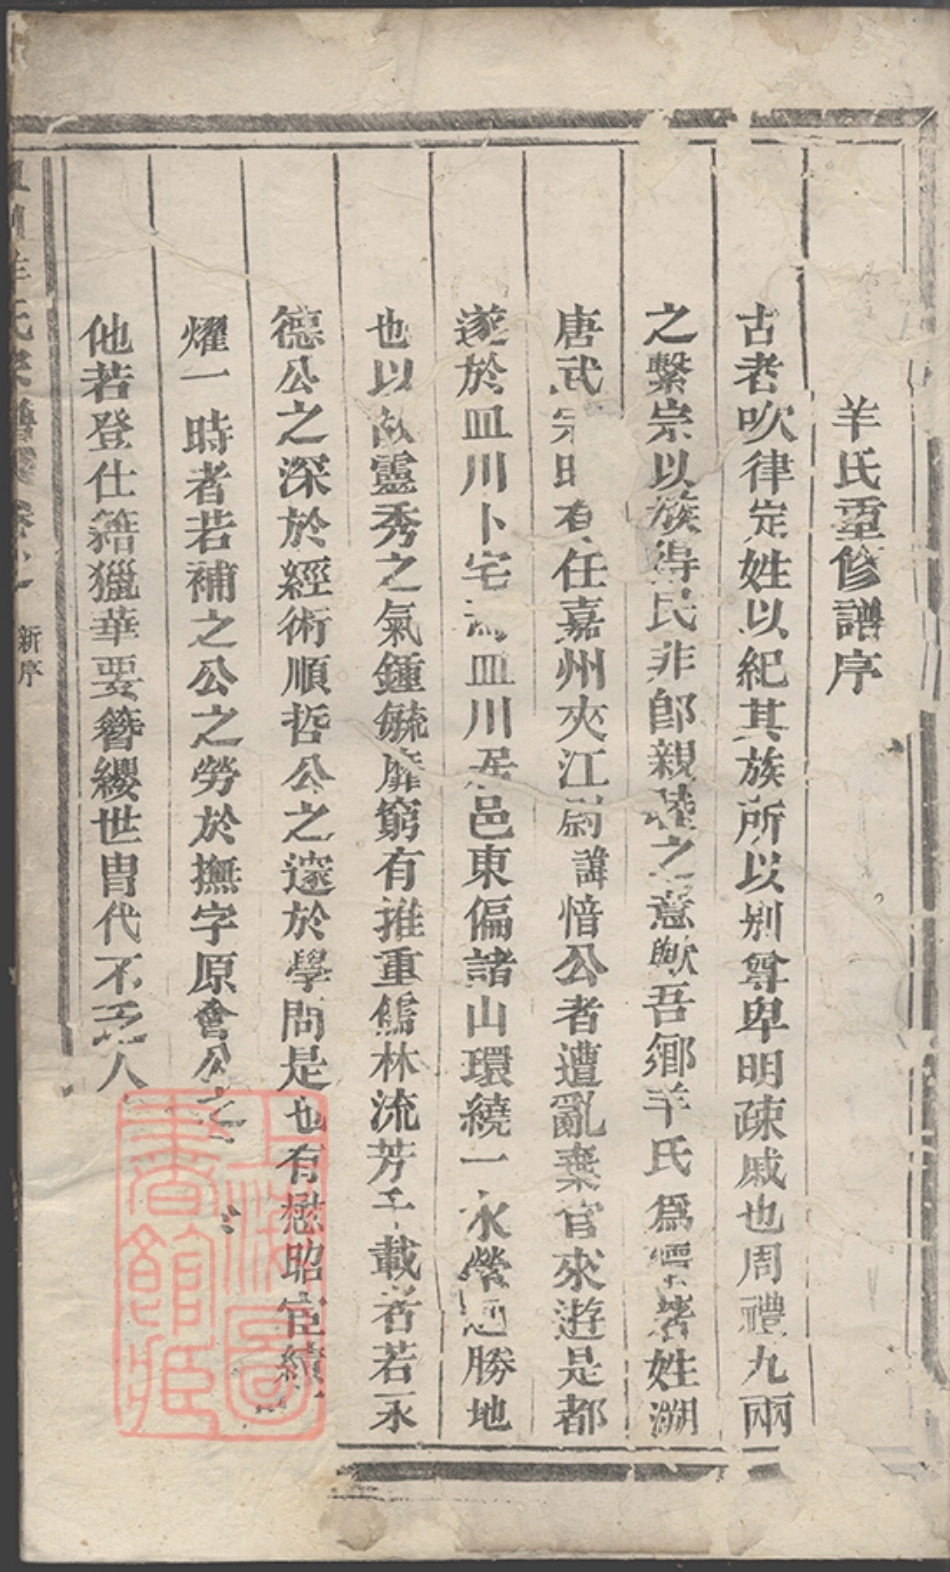 羊氏重修譜序
古者吹律定姓以紀其族所以别尊卑明疎戚也周禮九兩
之繫宗以族得民非卽親睦之意歟吾鄉羊氏爲著姓溯
唐武宗時有任嘉州夾江尉諱愔公者遭亂棄官來遊是都
遂於皿川卜宅焉皿川居邑東偏諸山環繞一水縈迴勝地
也以故靈秀之氣鍾毓靡窮有推重儒林流芳千載者若永
德公之深於經術順哲公之邃於學問是也有懋昭宦績
燿一時者若補之公之勞於撫字原會公之
他若登仕籍獵華要簪纓世冑代不乏人
氏宗譜卷之 新序
上海圖書館藏